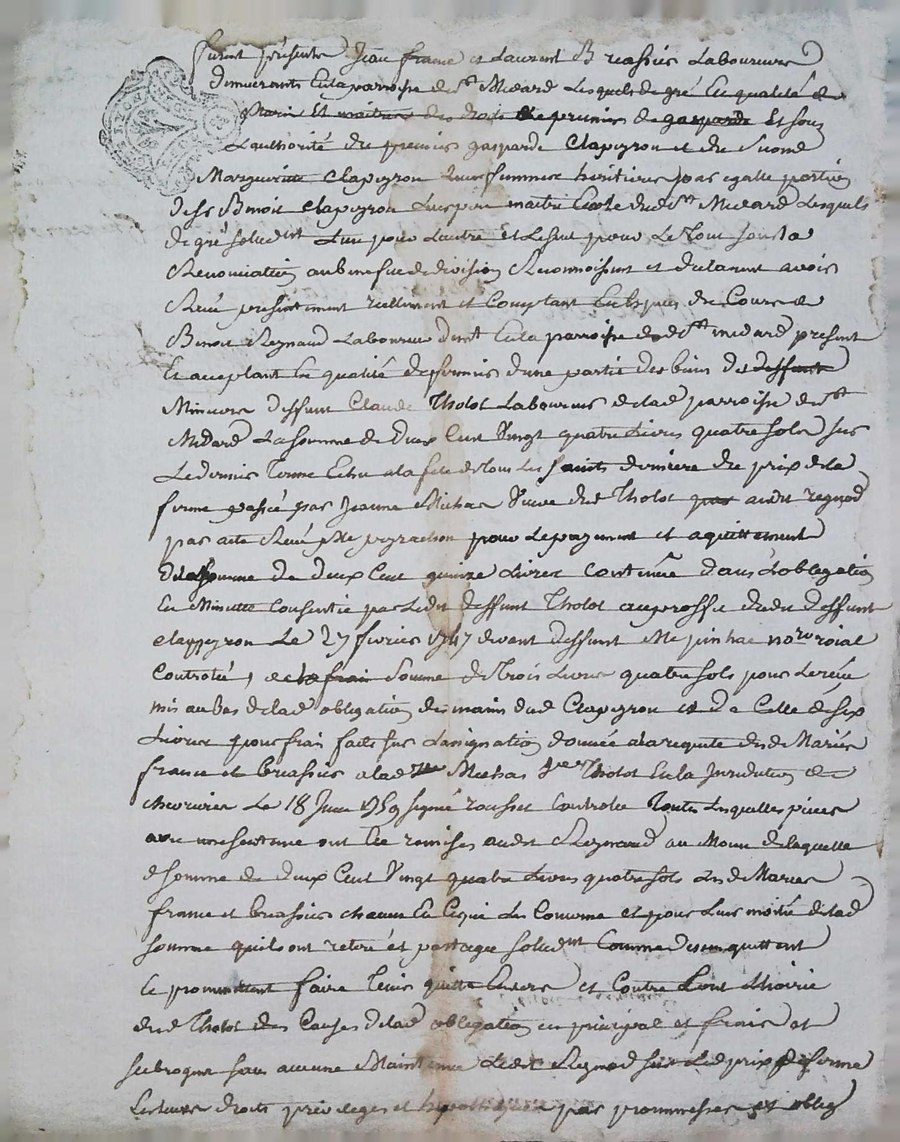 furent présents Jean france et Laurent Breassier Laboureurs
demeurants En la parroisse de st Medard Lesquels de gré En qualité de
Maris Et maitres des droits le premier de gasparde Et sous
Lauthorité du premier gasparde Clapeyron et du second
Margueritte Clapeyron Leurs femmes heritieres par egalle portion
de sr Benoit Clapeyron Leur pere maitre Ecole dud st Medard Lesquels
de gré solidt Lun pour Lautre et Lesul pour Le Tout sous la
Renonciation au benefice de division Reconnoissent et declarent avoir
Reçu presentement reellement et Comptant En Espices de Cours de
Benoit Reynaud Laboureur demt En la parroisse dud st medard present
Et acceptant En qualité de fermier dune partie des biens des
Mineurs deffunt Claude Tholot Laboureur de lad parroisse de st
Medard La somme de Deux Cent Vingt quatre Livres quatre sols sur
Le dernier Terme Echu a la fete de Tous Les saints derniere du prix de la
ferme passée par Jeanne Michas Veuve dud Tholot audit regnod
par acte Reçu Me peyrachon pour Le payement et aquittement
de la somme de deux Cent quinze Livres Contenüe dans Lobligation
En Minutte Consentie par Ledit deffunt Tholot au proffit dudit deffunt
clappeyron Le 27 fevrier 1747 devant deffunt Me pinhac nore roial
Controlé, et de somme de Trois Livres quatre sols pour Le reçu
mis au bas de lad obligation des mains dud Clapeyron et de Celle de six
Livres pour frais faits sur Lasignation donnée a la requete desd Mariés
france et breassier a lad Michas Vve Tholot En la Juridiction de
chevrieres Le 18 Juin 1759 signé rousset Controlé Toutes Lesquelles pieces
avec une sentence ont Eté remises audit Reynaud au Moien de laquelle
d somme de deux Cent Vingt quatre Livres quatre sols Lesd Maries
france et breassier chacun En Ce qui Les Concerne et pour Leur moitié de lad
somme quils ont retiré et partagée solidt Comme dessus quittent
et promettent faire Tenir quitte Envers et Contre Tous Lhoirie
dud Tholot des Causes de lad obligation en principal et frais et
subrogent sans aucune Maintenue Ledit Reynod sur Led prix de ferme
Leurs droits privileges et hypotheques par prommesses et oblig